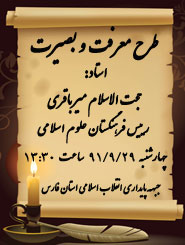 طرح معرفت و بصیرت
استاد:
حجت الاسلام میرباقری
رییس فرهنگستان علوم اسلامی
چهارشنبه ۹۱/۹/۲۹ ساعت ۱۳:۳۰
جبهه پایداری انقلاب اسلامی استان فارس